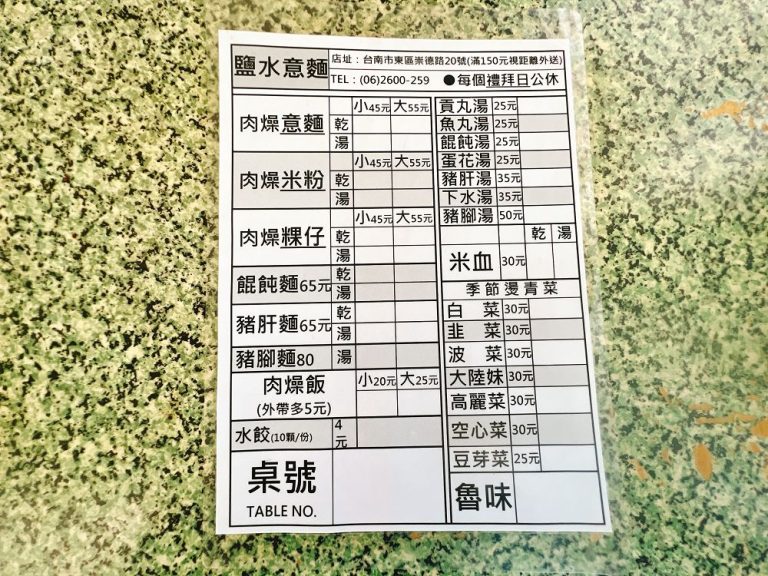 鹽水意麵
店址：台南市東區崇德路20號(滿150元視距離外送)
TEL：(06)2600-259 ●每個禮拜日公休
肉燥意麵 小45元 大55元
乾
湯
肉燥米粉 小45元 大55元
乾
湯
肉燥粿仔 小45元 大55元
乾
湯
餛飩麵65元 乾
湯
豬肝麵65元 乾
湯
豬腳麵80 湯
肉燥飯 小20元 大25元
(外帶多5元)
水餃(10顆/份) 4元
桌號
TABLE NO.
貢丸湯 25元
魚丸湯 25元
餛飩湯 25元
蛋花湯 25元
豬肝湯 35元
下水湯 35元
豬腳湯 50元
乾 湯
米血 30元
季節燙青菜
白菜 30元
韭菜 30元
波菜 30元
大陸妹 30元
高麗菜 30元
空心菜 30元
豆芽菜 25元
魯味